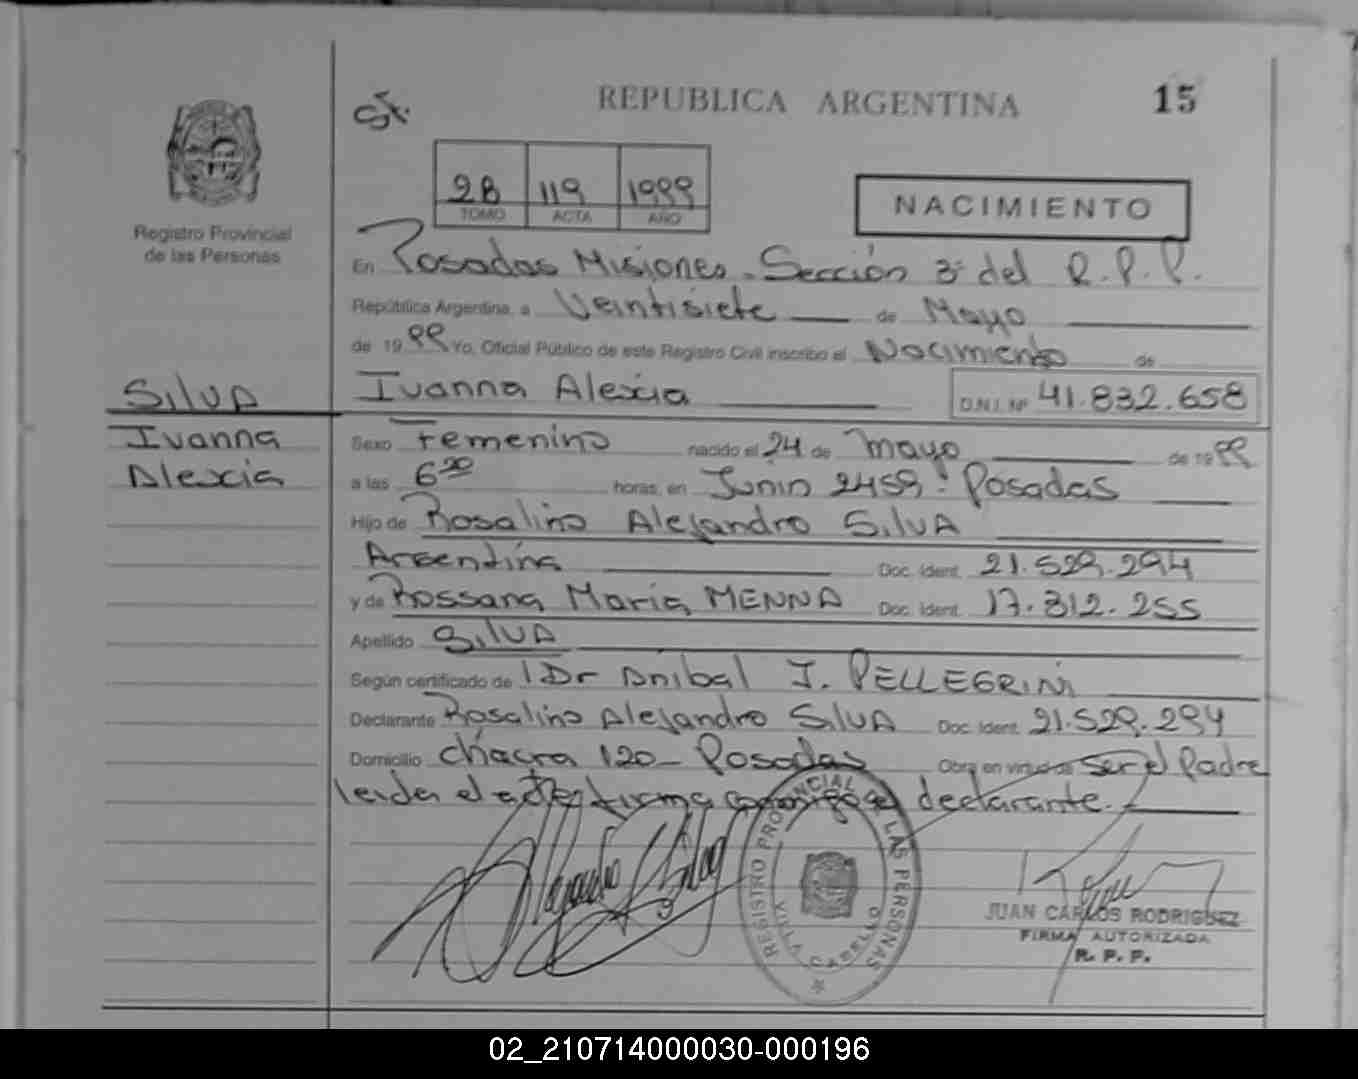 REPUBLICA ARGENTINA 15
2B 119 1999
TOMO ACTA AÑO
NACIMIENTO
Registro Provincial
de las Personas
En Posadas Misiones - Sección 3ª del R.P.P.
República Argentina, a Veintisiete de Mayo
de 1999 Yo, Oficial Público de este Registro Civil inscribo el Nacimiento de
Ivanna Alexia D.N.I. Nº 41.832.658
SILVA
Ivanna
Alexia
Sexo Femenino nacido el 24 de mayo de 1999
a las 6 30 horas, en Junin 2459: Posadas
Hijo de Rosalino Alejandro SILVA
Argentina Doc. Ident. 21.529.294
y de Rossana Maria MENNA Doc. Ident. 17.312.255
Apellido SILVA
Según certificado de Dr Anibal J. PELLEGRINI
Declarante Rosalino Alejandro SILVA Doc. Ident. 21.529.294
Domicilio Chacra 120 - Posadas Obra en virtud de Ser el Padre
leida el acta firma declarante.
REGISTRO PROVINCIAL DE LAS PERSONAS
VILLA CABELLO
JUAN CARLOS RODRIGUEZ
FIRMA AUTORIZADA
R. P. P.
02_210714000030-000196